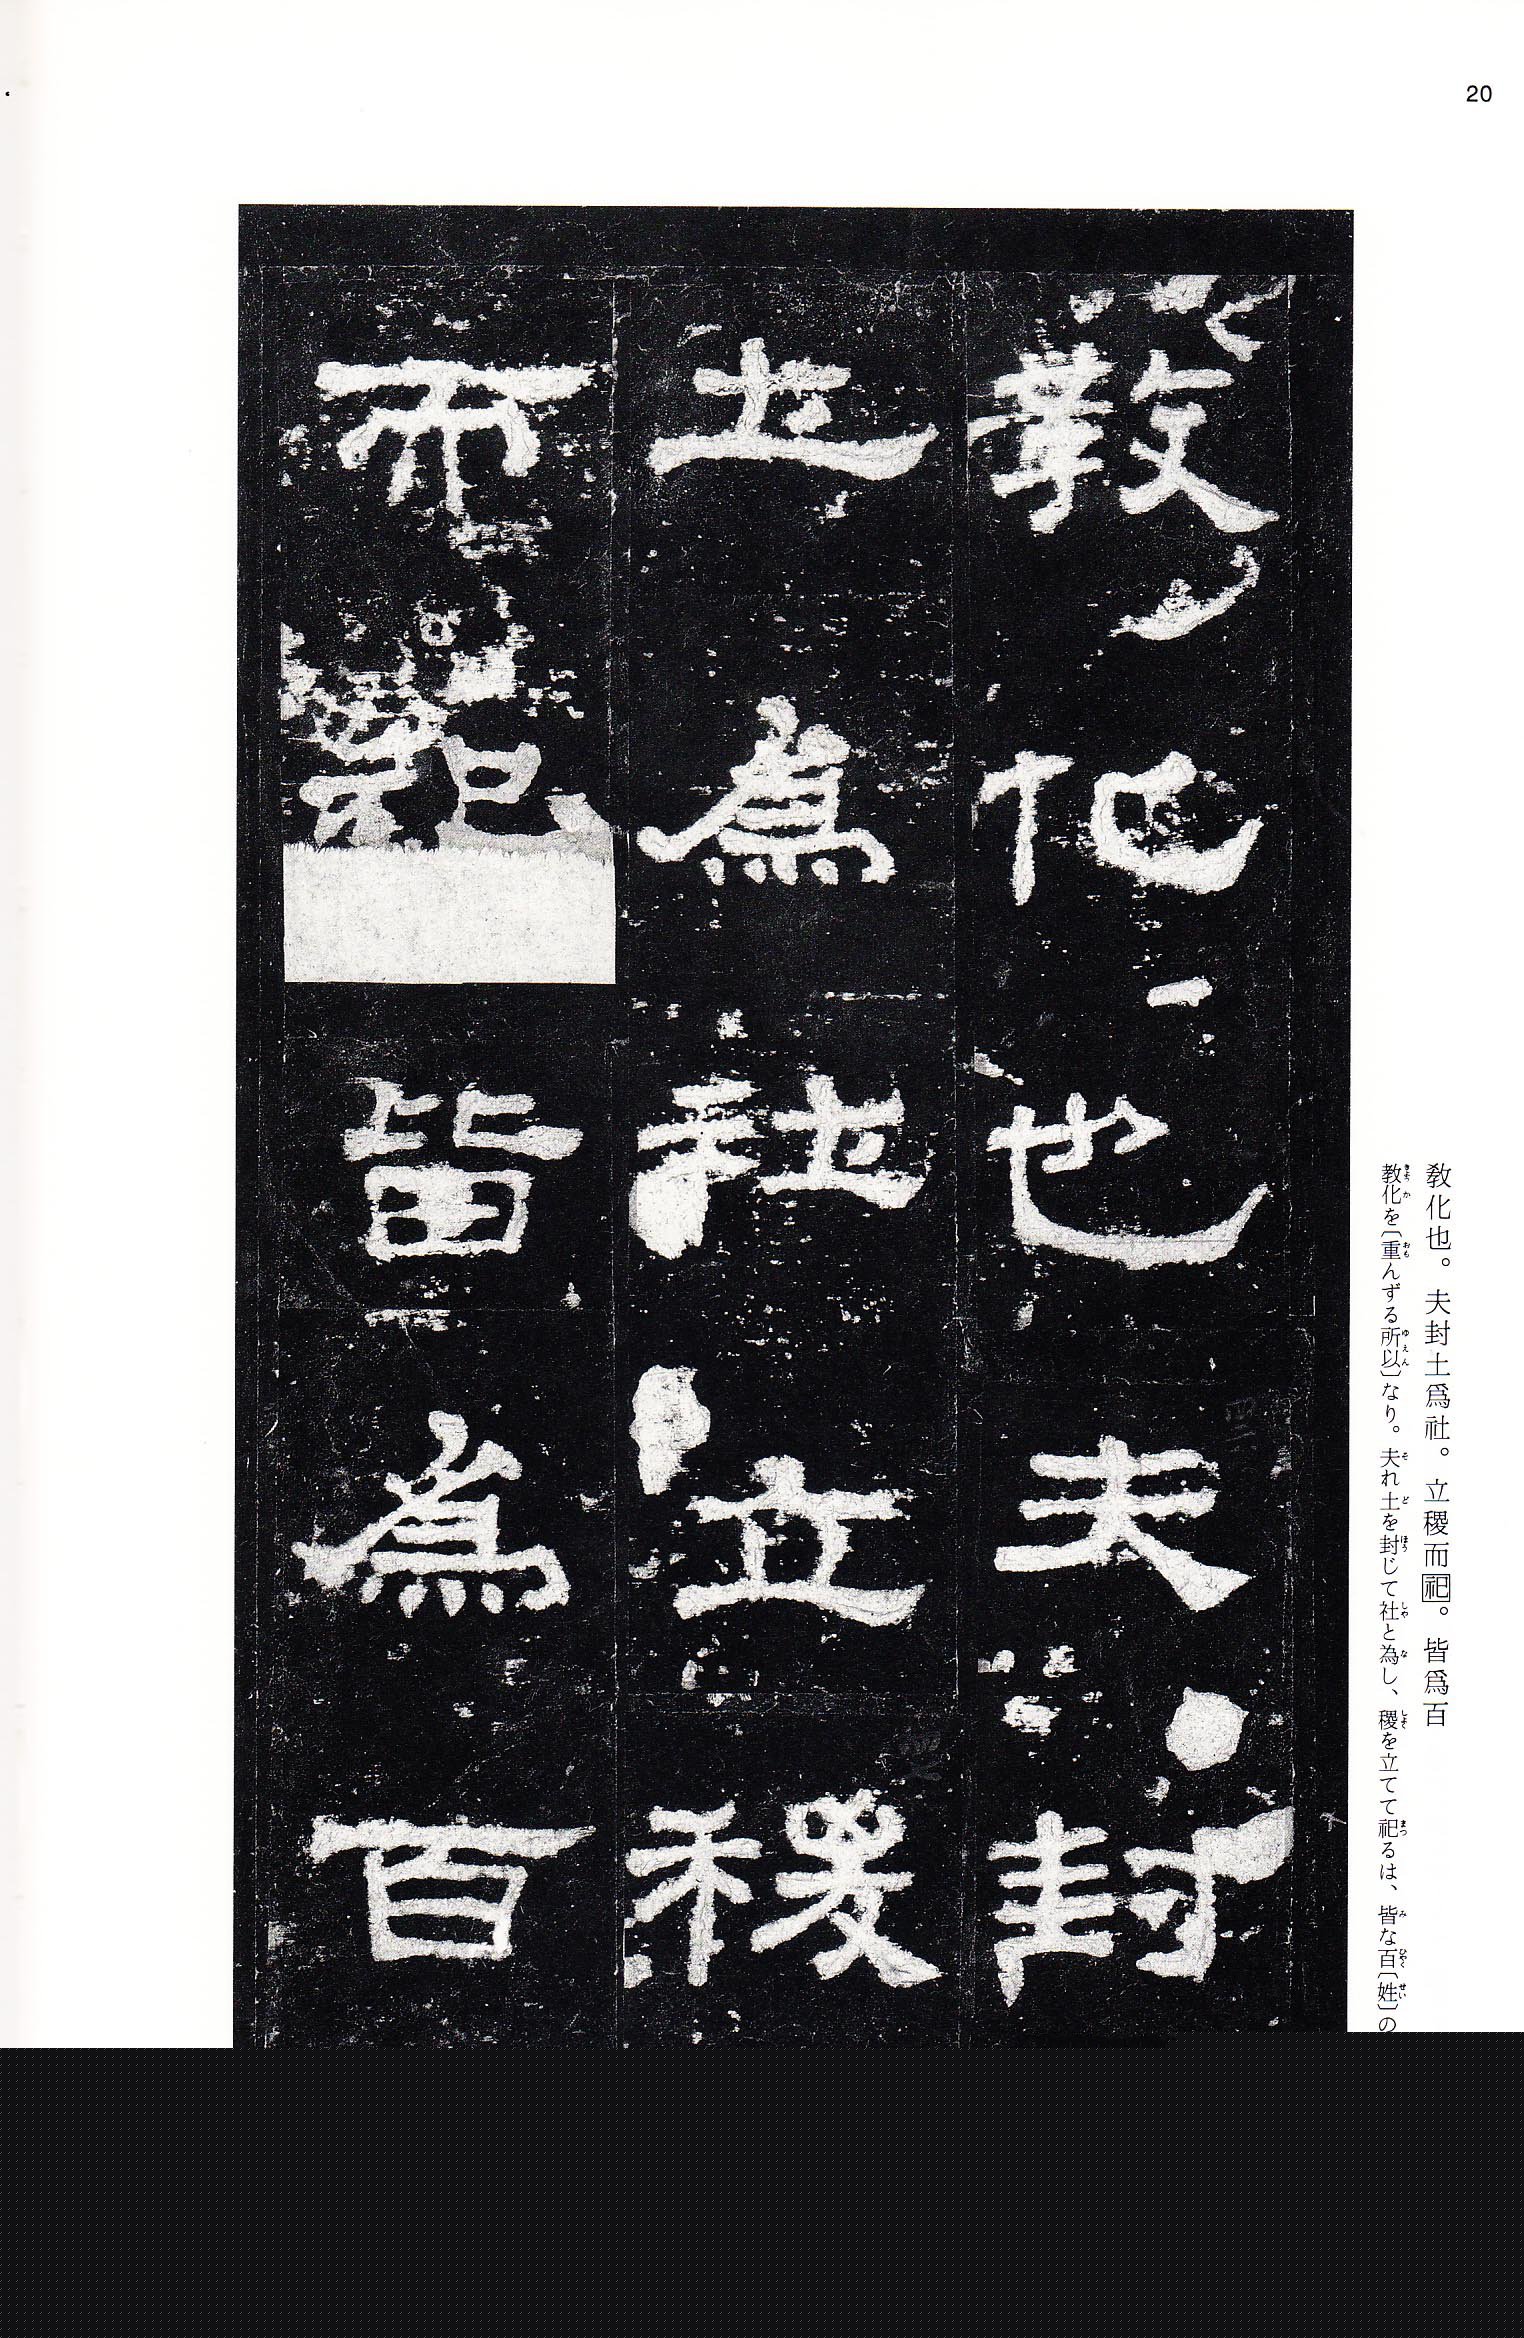 20
教化也。夫封土爲社。立稷而祀。皆爲百
教化を〔重んずる所以〕なり。夫れ土を封じて社と為し、稷を立てて祀るは、皆な百〔姓〕の
教化也夫封
土爲社立稷
而祀皆爲百